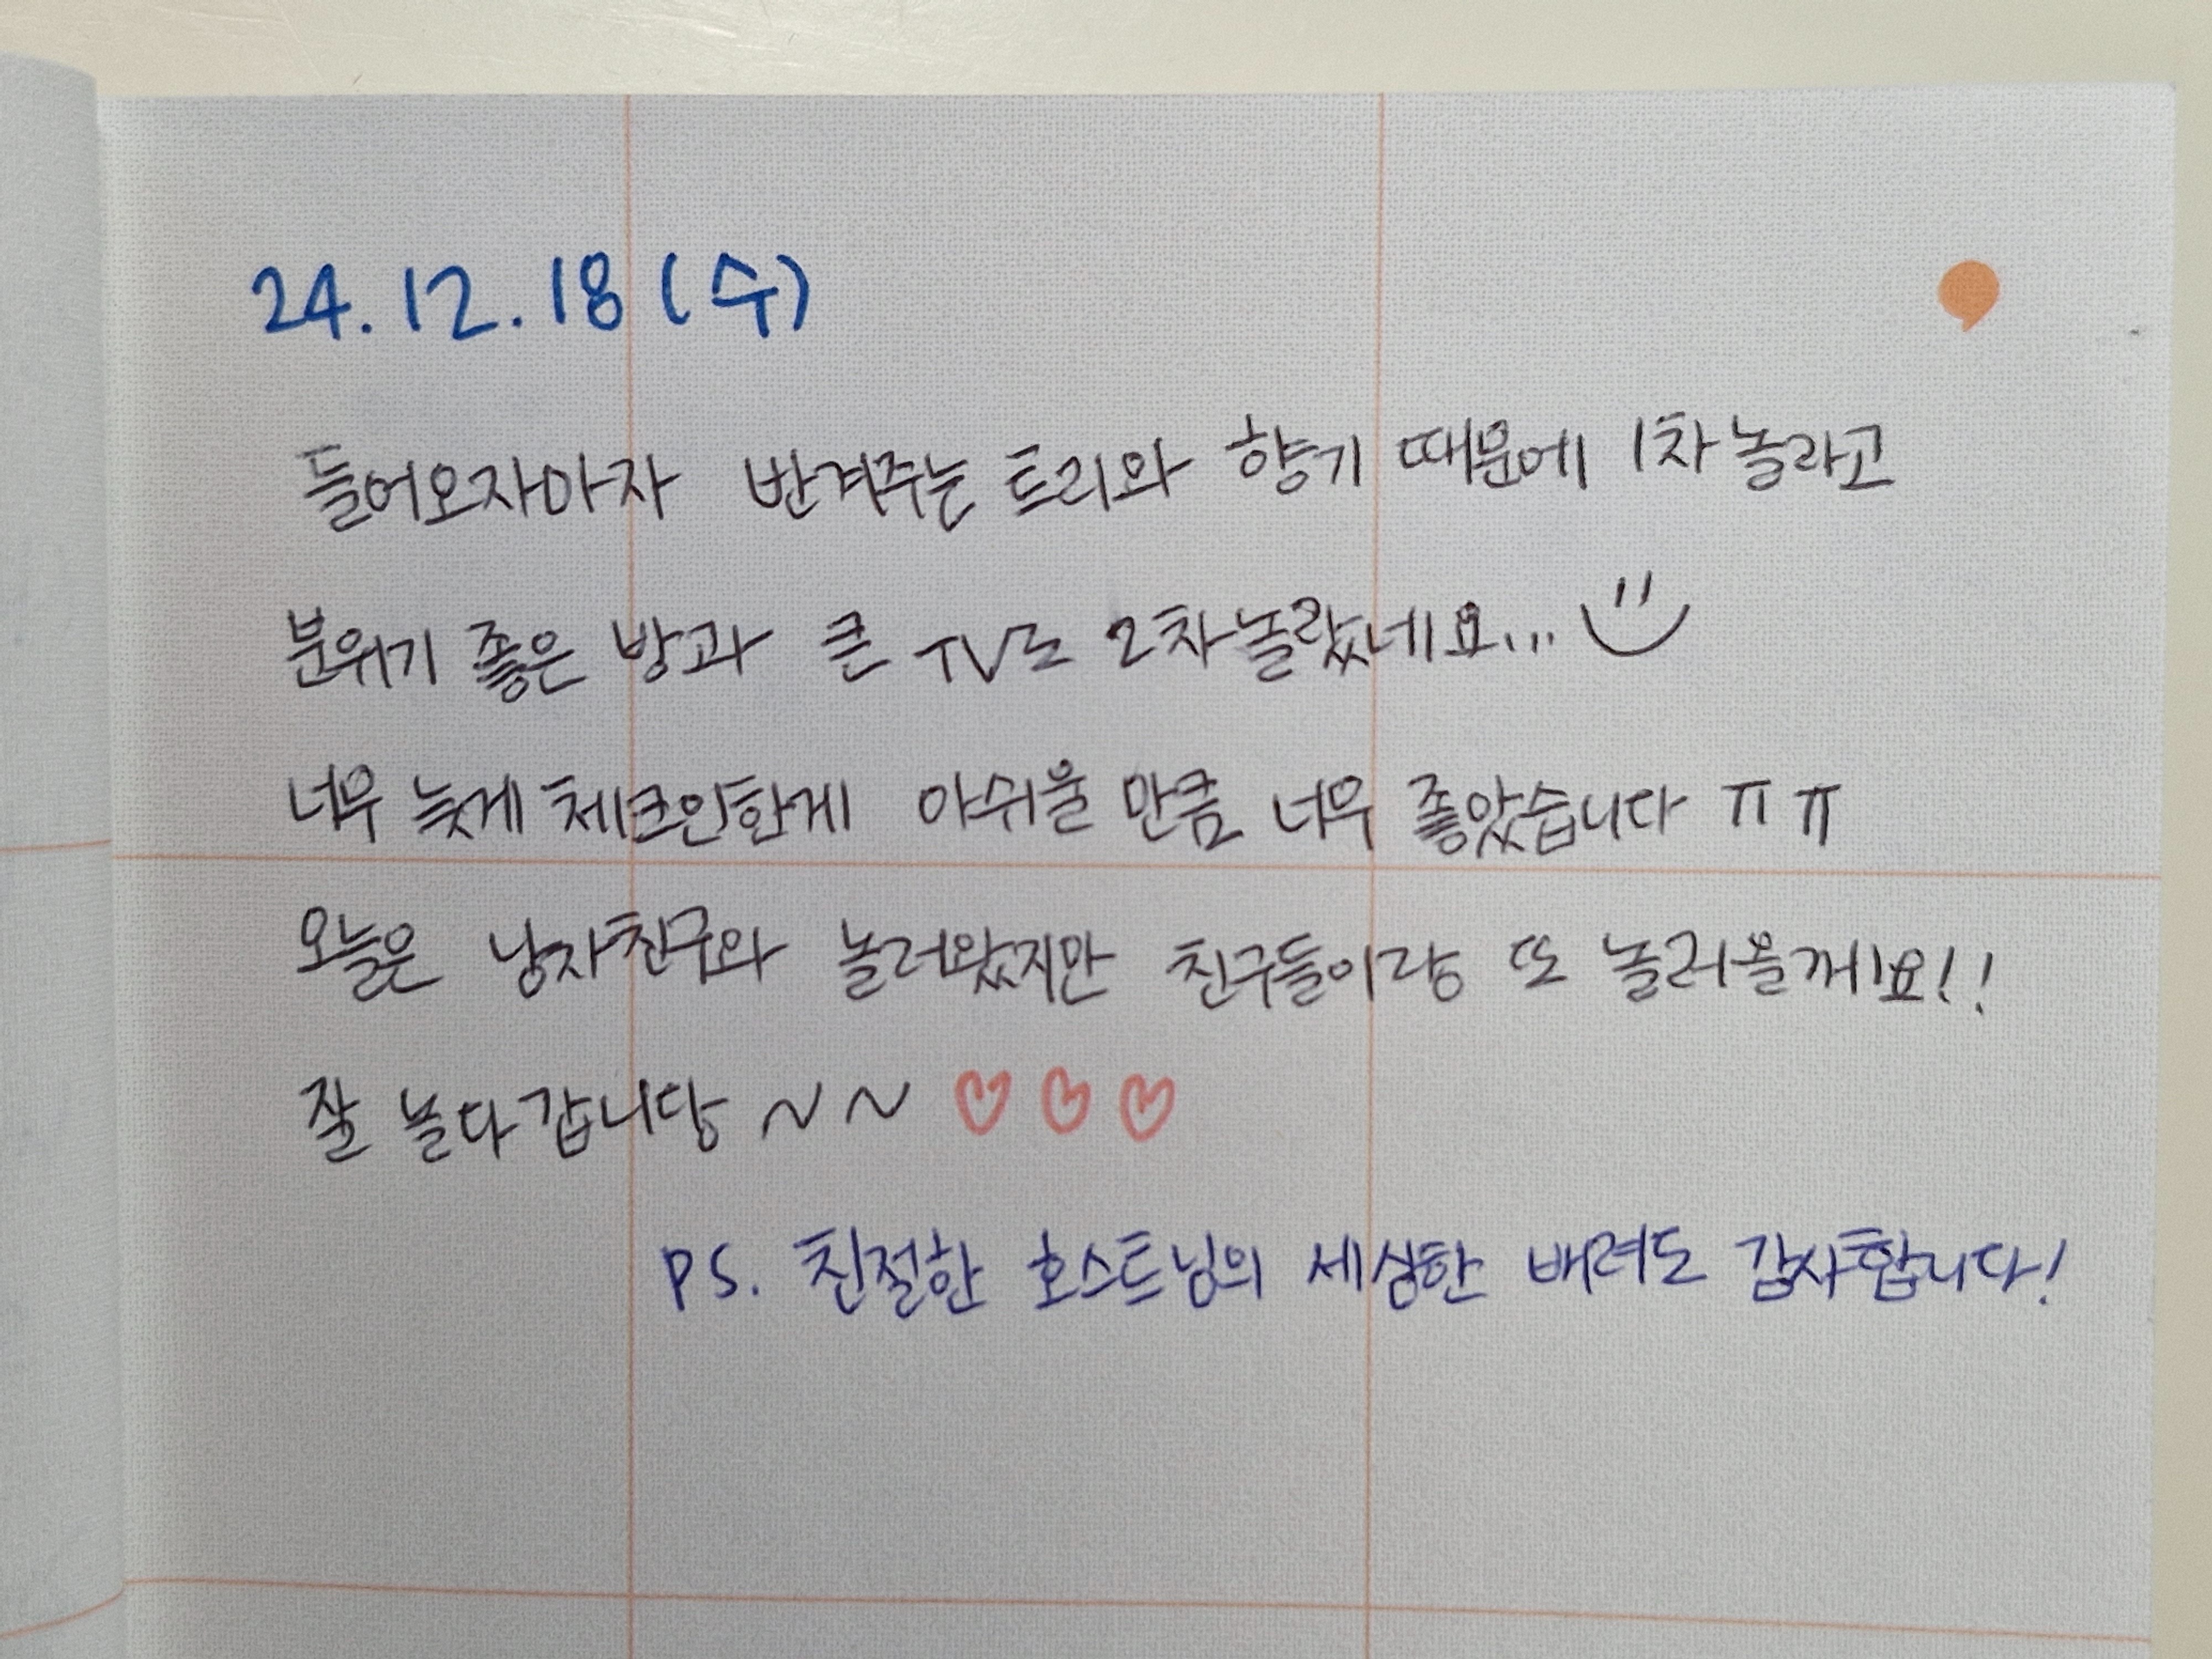 24.12.18(수)
들어오자아자 반겨주는 트리와 향기 때문에 1차놀라고
분위기 좋은 방과 큰 TV로 2차놀랐네요...
너무 늦게 체크인한게 아쉬울 만큼 너무 좋았습니다 ㅠㅠ
오늘은 남자친구와 놀러왔지만 친구들이랑 또 놀러올께요!!
잘 놀다갑니당 ~~ ♡♡♡
PS. 친절한 호스트님의 세심한 배려도 감사합니다!